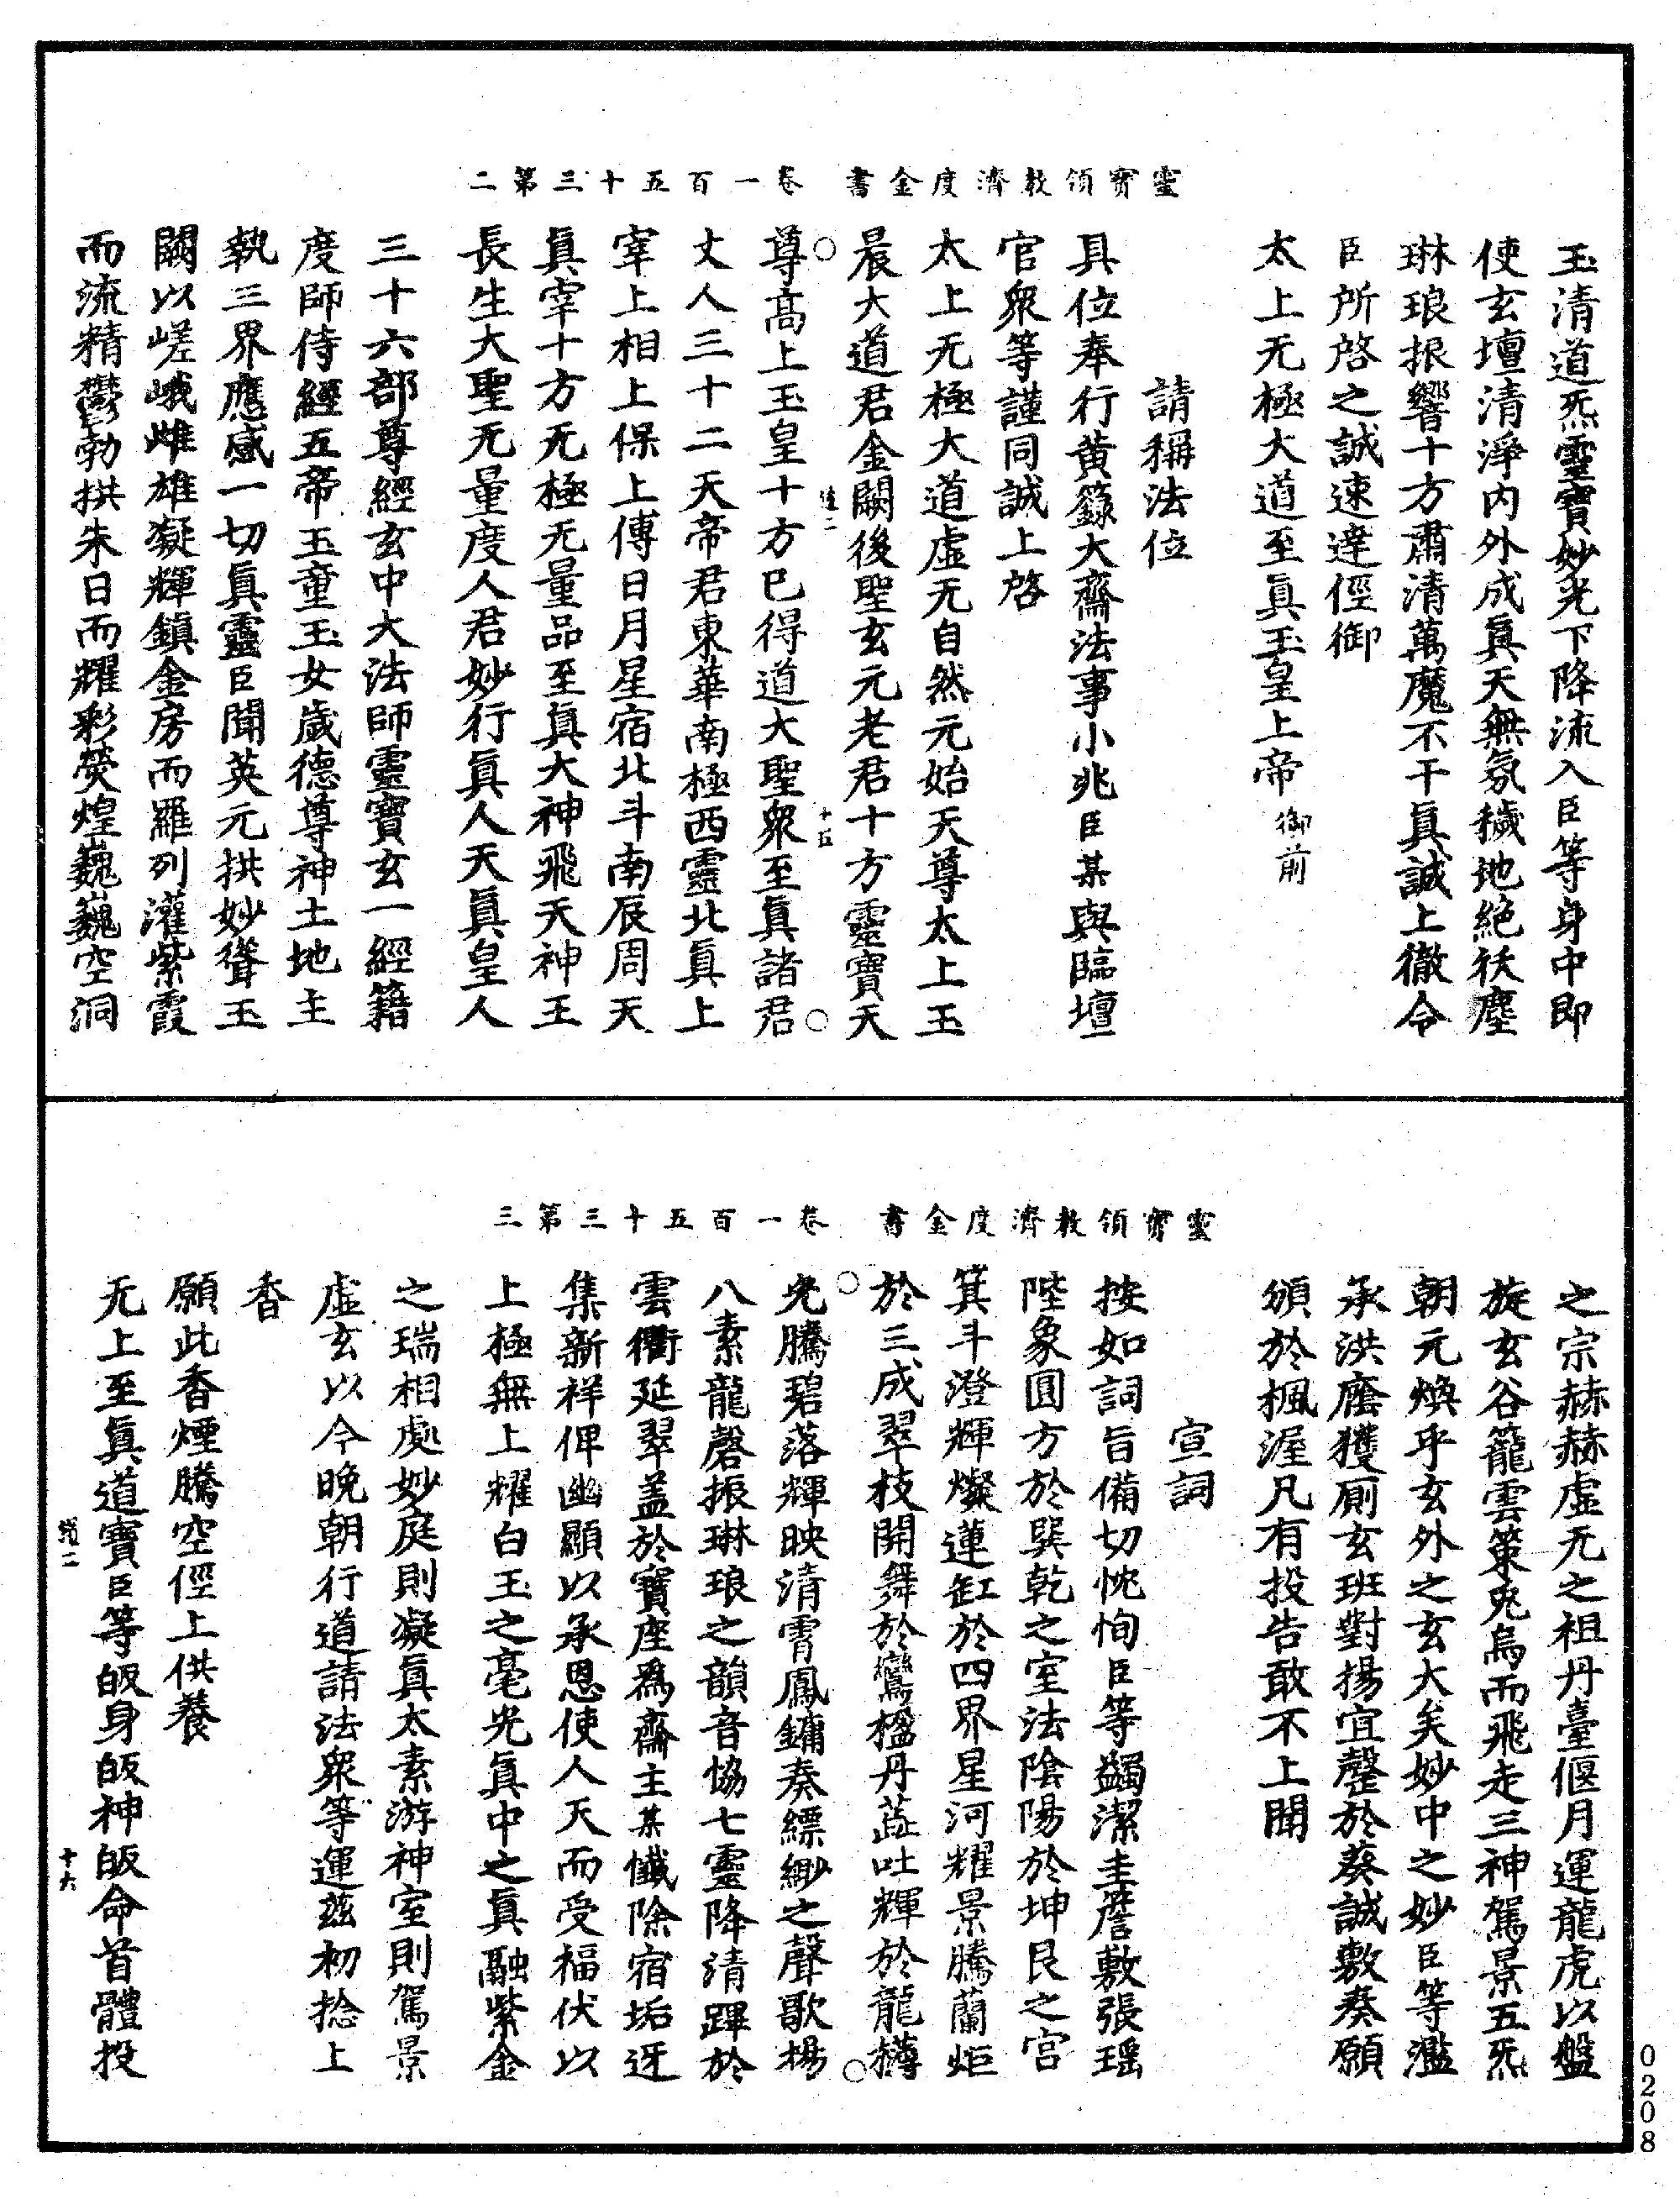 靈寶領教濟度金書　卷一百五十三第二
玉清道炁靈寶妙光下降流入臣等身中即
使玄壇清淨內外成眞天無氛穢地絕祅塵
琳琅振響十方肅清萬魔不干眞誠上徹令
臣所啓之誠速達徑御
太上无極大道至眞玉皇上帝御前
請稱法位
具位奉行黃籙大齋法事小兆臣某與臨壇
官衆等謹同誠上啓
太上无極大道虛无自然元始天尊太上玉
晨大道君金闕後聖玄元老君十方靈寶天
尊高上玉皇十方已得道大聖衆至眞諸君
丈人三十二天帝君東華南極西靈北眞上
宰上相上保上傅日月星宿北斗南辰周天
眞宰十方无極无量品至眞大神飛天神王
長生大聖无量度人君妙行眞人天眞皇人
三十六部尊經玄中大法師靈寶玄一經籍
度師侍經五帝玉童玉女歲德尊神土地主
執三界應感一切眞靈臣聞英元拱妙聳玉
闕以嵯峨雌雄凝輝鎮金房而羅列灌紫霞
而流精鬱勃拱朱日而耀彩熒煌巍巍空洞
十五
靈寶領教濟度金書　卷一百五十三第三
之宗赫赫虛无之祖丹臺偃月運龍虎以盤
旋玄谷籠雲策兎烏而飛走三神駕景五炁
朝元煥乎玄外之玄大矣妙中之妙臣等濫
承洪廕獲厠玄班對揚宜罄於葵誠敷奏願
頒於楓渥凡有投告敢不上聞
宣詞
按如詞旨備切忱恂臣等蠲潔圭簷敷張瑶
陛象圓方於巽乾之室法陰陽於坤艮之宮
箕斗澄輝燦蓮缸於四界星河耀景騰蘭炬
於三成翠枝開舞於鸞楹丹蕋吐輝於龍欂
光騰碧落輝映清霄鳳鏞奏縹緲之聲歌揚
八素龍磬振琳琅之韻音協七靈降清蹕於
雲衢延翠盖於寶座爲齋主某懺除宿垢迓
集新祥俾幽顯以承恩使人天而受福伏以
上極無上耀白玉之毫光眞中之眞融紫金
之瑞相處妙庭則凝眞太素游神室則駕景
虛玄以今晚朝行道請法衆等運茲初捻上
香
願此香煙騰空徑上供養
无上至眞道寶臣等皈身皈神皈命首體投
十六
0208